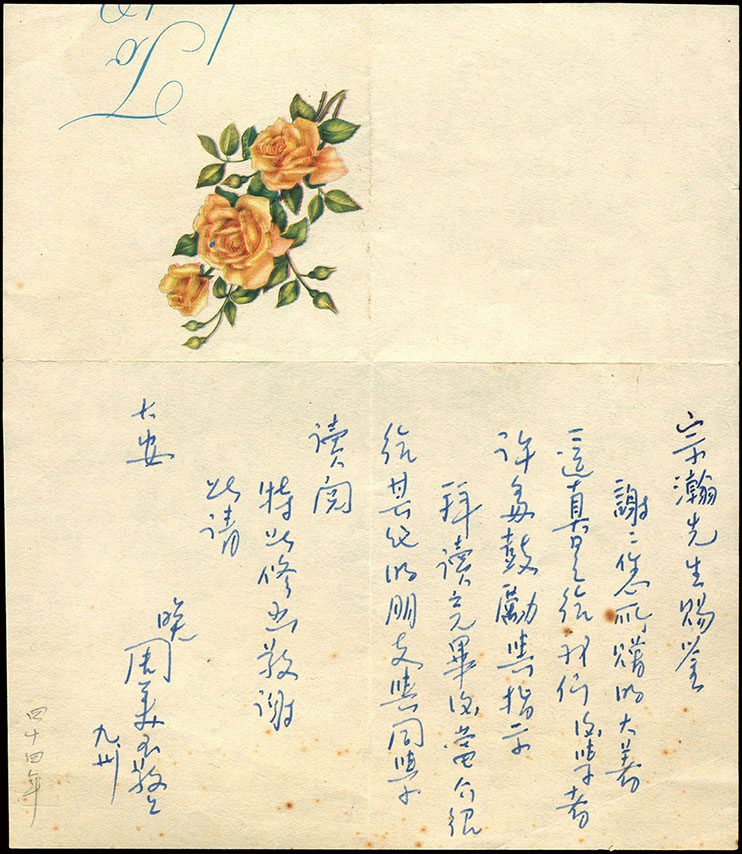 宗瀚先生賜鉴
謝〻您所贈的大著
這真是給我們後學者
許多鼓勵與指示
拜讀完畢後當介紹
給其他的朋友與同學
讀閱
特此修函敬謝
此請
大安
晚
周美玉敬上
九、卅
四十四年
To